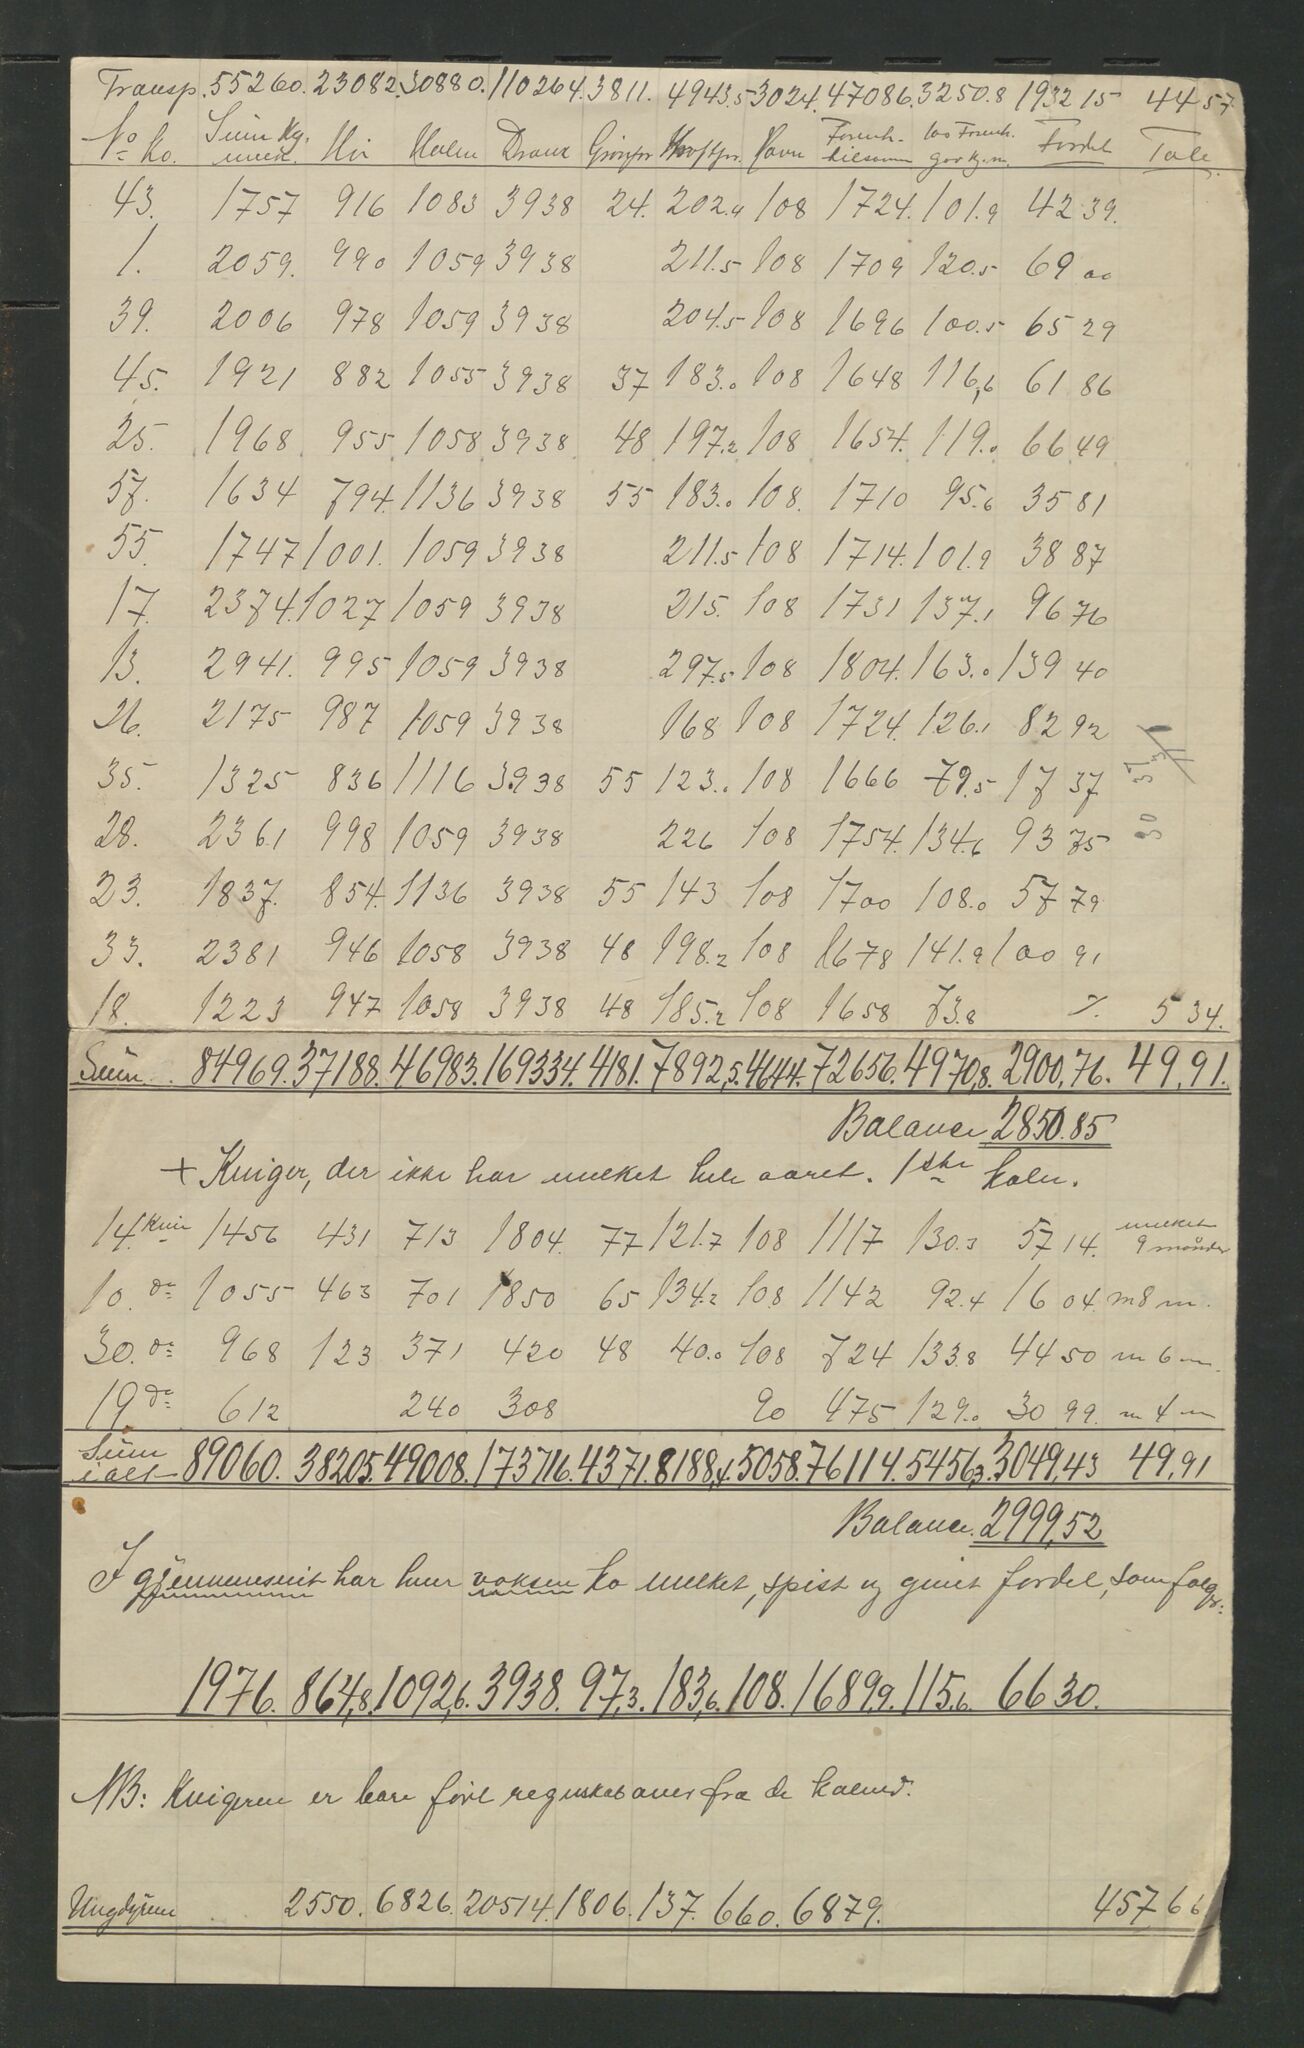 Transp. 55260. 23082. 30880. 110264. 3811. 4943.5 3024. 47086. 3250.8 1932 15 44 57
No Ko. Sum Kg. melk. Høi Halm Drank Grønfor Kraftfor. Havn Forenh. tilsamm 100 Forenh. gav kg. m. Fordel Tab.
43. 1757 916 1083 3938 24. 202.4 108 1724. 101.9 42 39.
1. 2059. 990 1059 3938 211.5 108 1709 120.5 69 00
39. 2006 978 1059 3938 204.5 108 1696 100.5 65 29
45. 1921 882 1055 3938 37 183.0 108 1648 116,6 61 86
25. 1968 955 1058 3938 48 197.2 108 1654. 119.0 66 49
57. 1634 794. 1136 3938 55 183.0 108. 1710 95.6 35 81
55. 1747 1001. 1059 3938 211.5 108 1714. 101.9 38 87
17. 2374. 1027 1059 3938 215. 108 1731 137.1 96 76
13. 2941. 995 1059 3938 297.5 108 1804. 163.0 139 40
26. 2175 987 1059 3938 168 108 1724. 126.1 82 92
35. 1325 836 1116 3938 55 123.0 108 1666 79.5 17 37
28. 2361 998 1059 3938 226 108 1754. 134.6 93 75
30
23. 1837. 854. 1136 3938 55 143 108 1700 108.0 57 79
33. 2381 946 1058 3938 48 198.2 108 1678 141.9 100 91
18. 1223 947 1058 3938 48 185.2 108 1658 73.8 % 5 34.
Sum. 84969. 37188. 46983. 169334. 4181. 7892,5. 4644. 72656. 4970,8. 2900,76. 49,91.
Balance 2850.85
+ Kviger, der ikke har melket hele aaret. 1ste kalv.
14. Kvie 1456 431 713 1804. 77 121.7 108 1117 130.3 57 14. melket 9 måneder
10. do 1055 463 701 1850 65 134.2 108 1142 92.4 16 04. m 8 m.
30. do 968 123 371 420 48 40.0 108 724 133.8 44 50 m 6 m.
19 do 612 240 308 90 475 129.0 30 99. m 4 m
Sum ialt 89060. 38205. 49008. 173716. 4371. 8188,4. 5058. 76114. 5456,3. 3049,43 49,91
Balance. 2999,52
I gjennemsnit har hver voksen ko melket, spist og givet fordel, som følger:
1976. 864,8. 1092,6. 3938. 97,3. 183,6. 108. 1689,9. 115,6. 66 30.
NB: Kvigerne er bareført regnskab over fra de kalved.
Ungdyrene 2550. 6826. 20514. 1806. 137. 660. 6879. 457,66